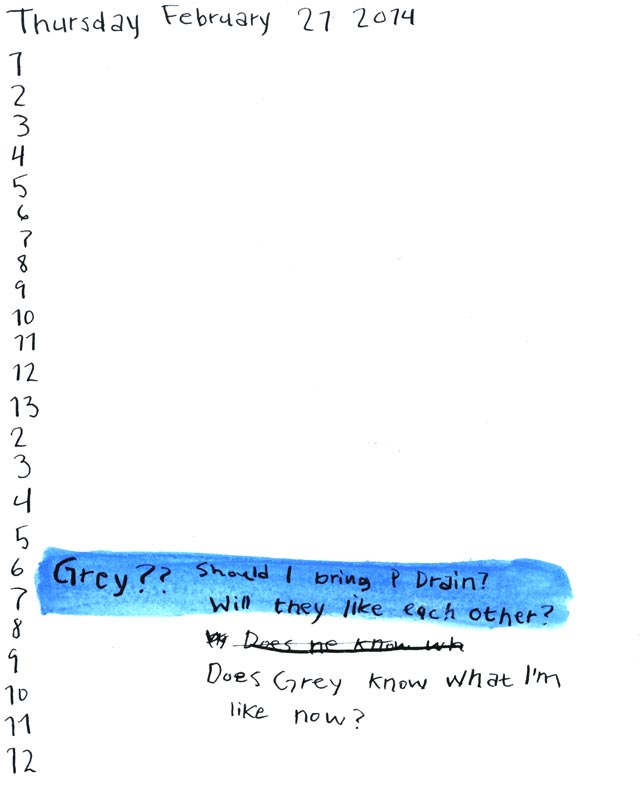 Thursday February 27 2014
1
2
3
4
5
6
7
8
9
10
11
12
13
2
3
4
5
6 Grey?? Should I bring P Drain?
7 Will they like each other?
8 Does he know wh
9 Does Grey know what I'm
10
11 like now?
12